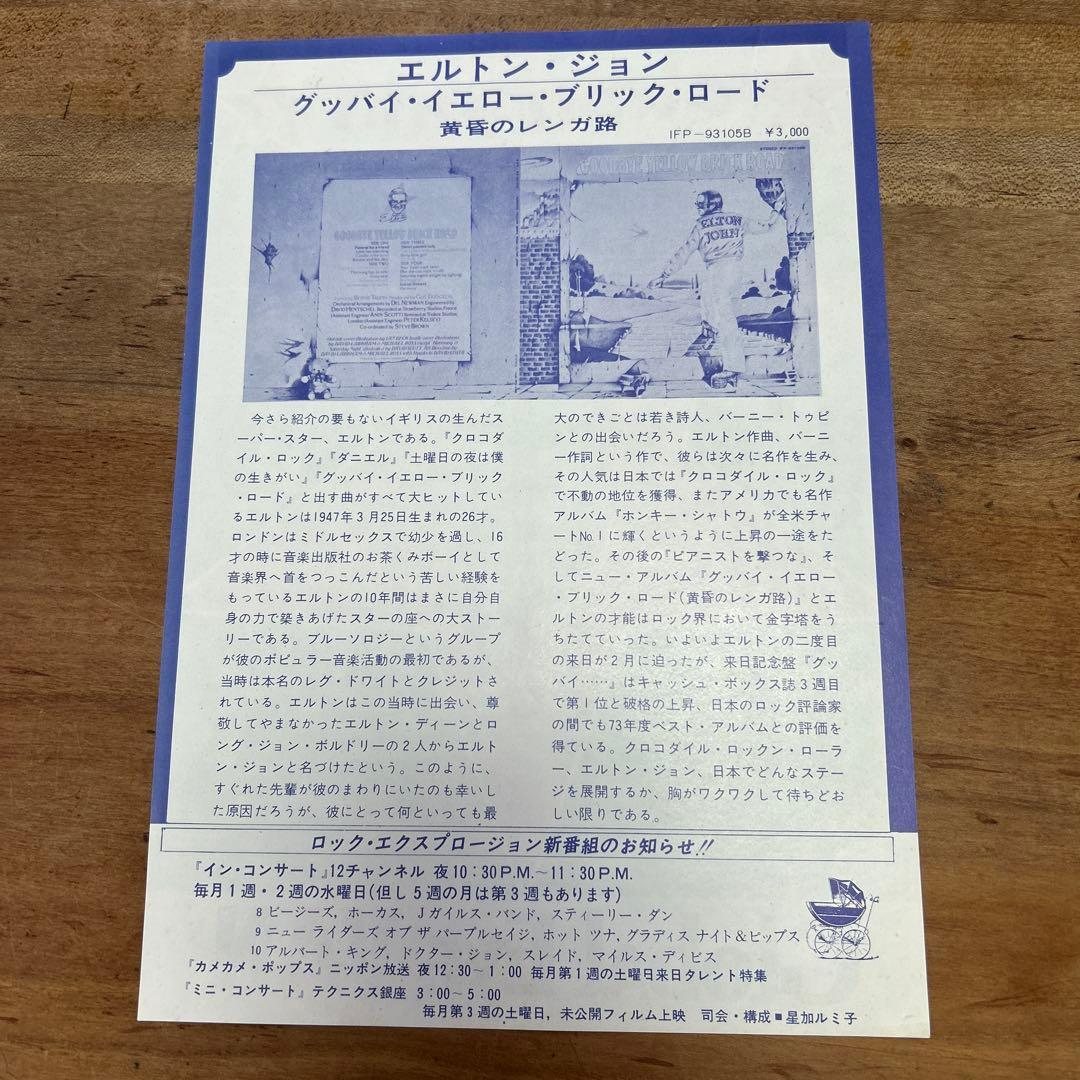 エルトン・ジョン
グッバイ・イエロー・ブリック・ロード
黄昏のレンガ路
IFP－93105B ￥3,000
GOODBYE YELLOW BRICK ROAD
ELTON
JOHN
GOODBYE YELLOW BRICK ROAD
SIDE ONE
SIDE THREE
SIDE TWO
SIDE FOUR
Orchestral Arrangements by DEL NEWMAN Engineered by
DAVID HENTSCHEL Recorded at Strawberry Studios, France
Co-ordinated by STEVE BROWN
今さら紹介の要もないイギリスの生んだス
ーパー・スター、エルトンである。『クロコダ
イル・ロック』『ダニエル』『土曜日の夜は僕
の生きがい』『グッバイ・イエロー・ブリック
・ロード』と出す曲がすべて大ヒットしてい
るエルトンは1947年3月25日生まれの26才。
ロンドンはミドルセックスで幼少を過し、16
才の時に音楽出版社のお茶くみボーイとして
音楽界へ首をつっこんだという苦しい経験を
もっているエルトンの10年間はまさに自分自
身の力で築きあげたスターの座への大ストー
リーである。ブルーソロジーというグループ
が彼のポピュラー音楽活動の最初であるが、
当時は本名のレグ・ドワイトとクレジットさ
れている。エルトンはこの当時に出会い、尊
敬してやまなかったエルトン・ディーンとロ
ング・ジョン・ボルドリーの2人からエルト
ン・ジョンと名づけたという。このように、
すぐれた先輩が彼のまわりにいたのも幸いし
た原因だろうが、彼にとって何といっても最
大のできごとは若き詩人、バーニー・トゥピ
ンとの出会いだろう。エルトン作曲、バーニ
ー作詞という作で、彼らは次々に名作を生み、
その人気は日本では『クロコダイル・ロック』
で不動の地位を獲得、またアメリカでも名作
アルバム『ホンキー・シャトウ』が全米チャ
ートNo.1に輝くというように上昇の一途をた
どった。その後の『ピアニストを撃つな』、そ
してニュー・アルバム『グッバイ・イエロー
・ブリック・ロード(黄昏のレンガ路)』とエ
ルトンの才能はロック界において金字塔をう
ちたてていった。いよいよエルトンの二度目
の来日が2月に迫ったが、来日記念盤『グッ
バイ……』はキャッシュ・ボックス誌3週目
で第1位と破格の上昇、日本のロック評論家
の間でも73年度ベスト・アルバムとの評価を
得ている。クロコダイル・ロックン・ローラ
ー、エルトン・ジョン、日本でどんなステー
ジを展開するか、胸がワクワクして待ちどお
しい限りである。
ロック・エクスプロージョン新番組のお知らせ!!
『イン・コンサート』12チャンネル 夜10：30P.M.～11：30P.M.
毎月1週・2週の水曜日(但し5週の月は第3週もあります)
8 ビージーズ, ホーカス, Jガイルス・バンド, スティーリー・ダン
9 ニュー ライダーズ オブ ザ パープルセイジ, ホット ツナ, グラディス ナイト&ピップス
10 アルバート・キング, ドクター・ジョン, スレイド, マイルス・ディビス
『カメカメ・ポップス』ニッポン放送 夜12：30～1：00 毎月第1週の土曜日来日タレント特集
『ミニ・コンサート』テクニクス銀座 3：00～5：00
毎月第3週の土曜日, 未公開フィルム上映 司会・構成■星加ルミ子